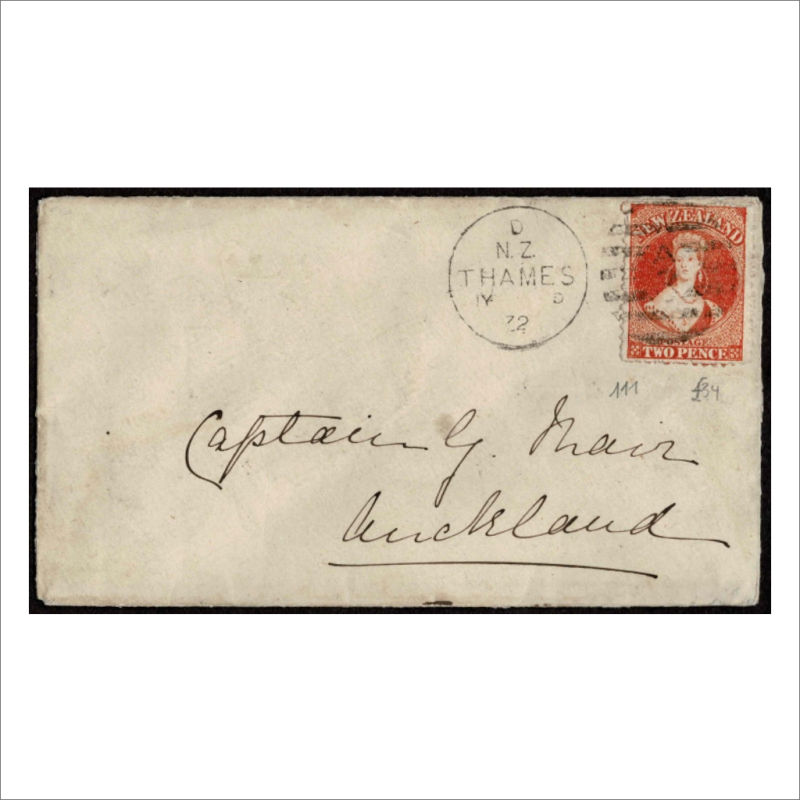 D
N.Z.
THAMES
72
NEW ZEALAND
POSTAGE
TWO PENCE
111 £34
Captain G. Mair
Auckland